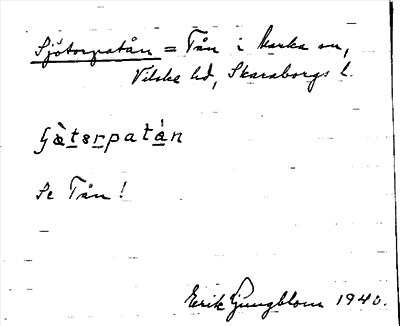 Sjötorpatån = Tån i Karka sn,
Vilske hd, Skaraborgs l.
Se Tån!
Erik Ljungblom 1940.